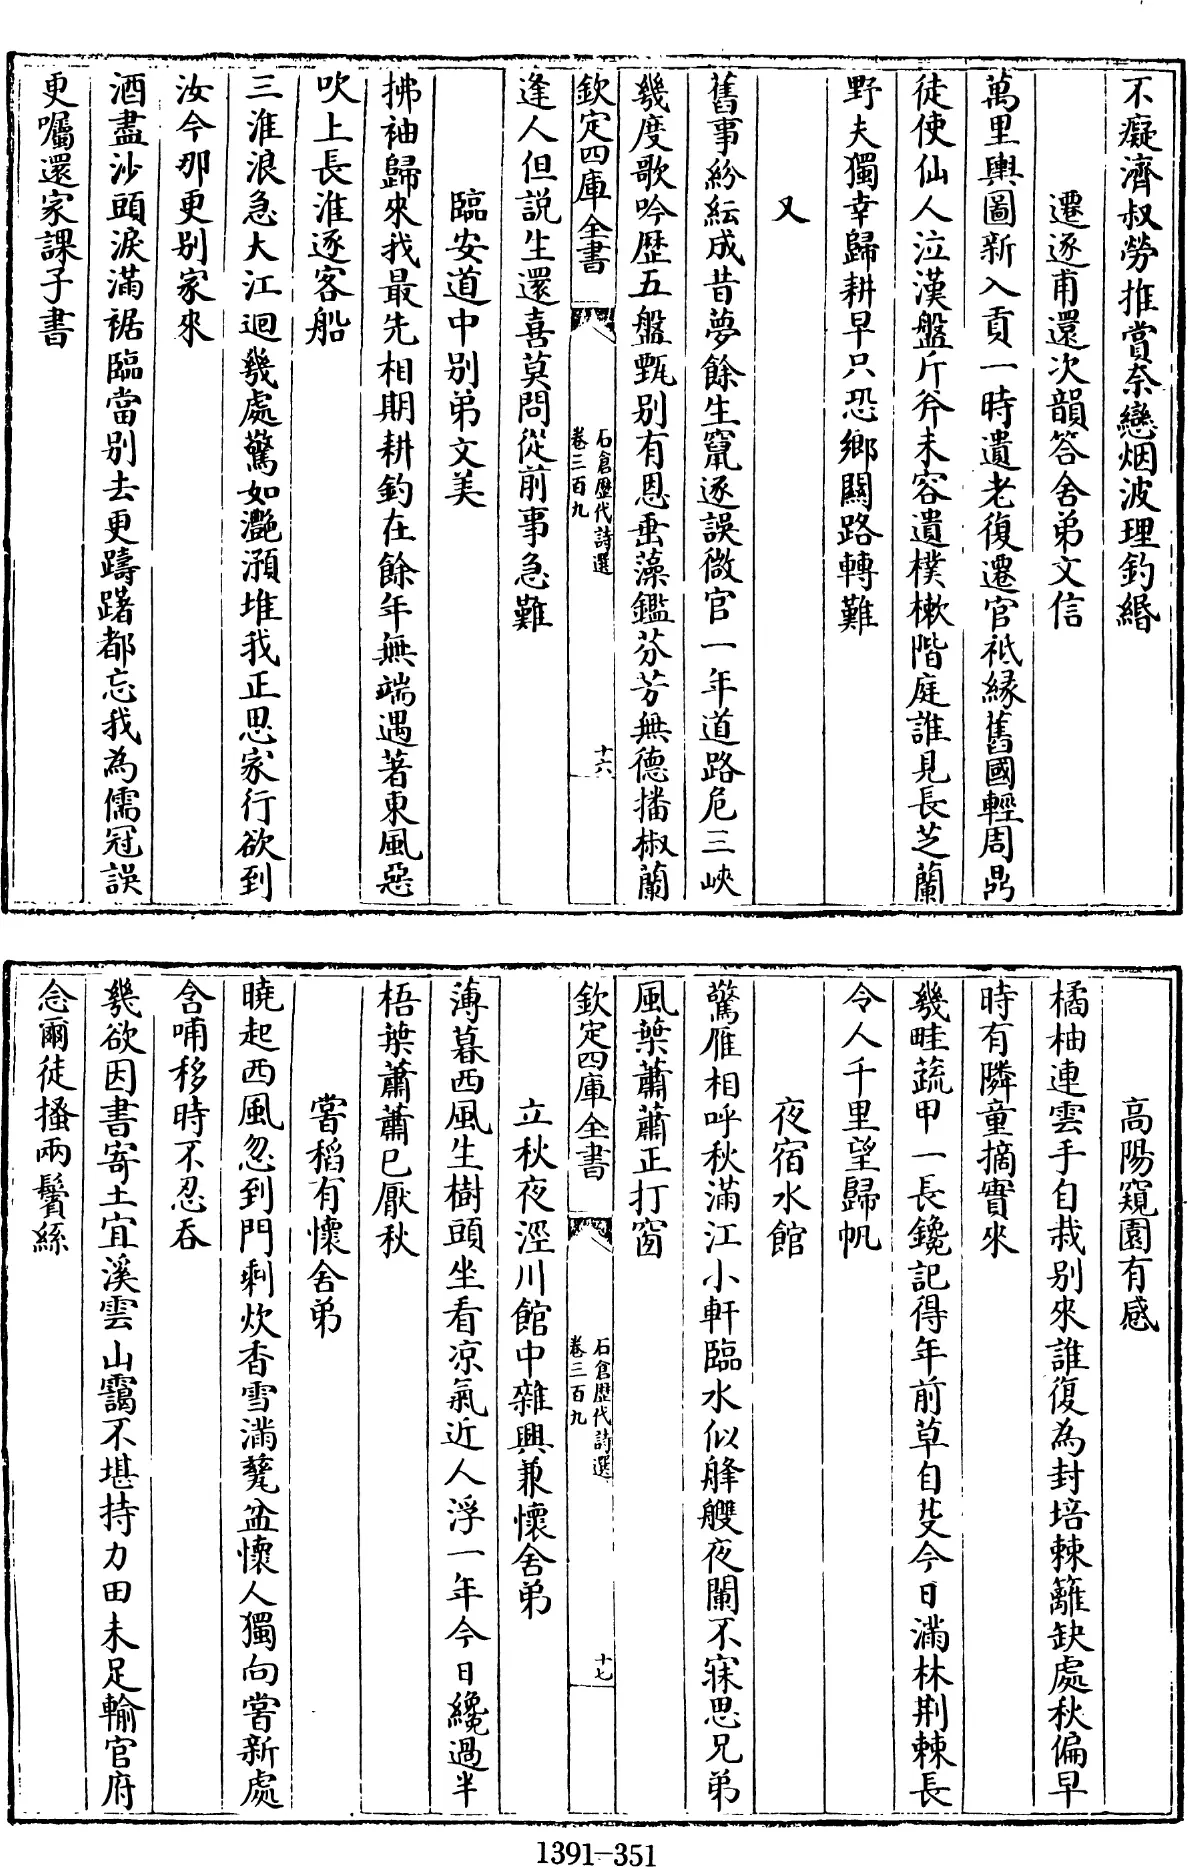 不癡濟叔勞推賞奈戀烟波理釣緡
遷逐甫還次韻答舍弟文信
萬里輿圖新入貢一時遺老復遷官祇緣舊國輕周鼎
徒使仙人泣漢盤斤斧未容遺樸樕階庭誰見長芝蘭
野夫獨幸歸耕早只恐鄉關路轉難
又
舊事紛紜成昔夢餘生竄逐誤微官一年道路危三峽
幾度歌吟歴五盤甄别有恩垂藻鑑芬芳無德播椒蘭
欽定四庫全書
石倉歴代詩選
卷三百九
十六
逢人但説生還喜莫問從前事急難
臨安道中别弟文美
拂袖歸來我最先相期耕釣在餘年無端遇著東風惡
吹上長淮逐客船
三淮浪急大江迴幾處驚如灔澦堆我正思家行欲到
汝今那更别家來
酒盡沙頭淚滿裾臨當别去更躊躇都忘我為儒冠誤
更囑還家課子書
高陽窺園有感
橘柚連雲手自栽别來誰復為封培棘籬缺處秋偏早
時有隣童摘實來
幾畦蔬甲一長鑱記得年前草自芟今日滿林荆棘長
令人千里望歸帆
夜宿水館
驚雁相呼秋滿江小軒臨水似䑫艭夜闌不寐思兄弟
風葉蕭蕭正打窗
欽定四庫全書
石倉歴代詩選
卷三百九
十七
立秋夜涇川館中雜興兼懷舍弟
薄暮西風生樹頭坐看凉氣近人浮一年今日纔過半
梧葉蕭蕭已厭秋
嘗稻有懷舍弟
曉起西風忽到門剩炊香雪滿甆盆懷人獨向嘗新處
含哺移時不忍吞
幾欲因書寄土宜溪雲山靄不堪持力田未足輸官府
念爾徒搔兩鬢絲
1391-351